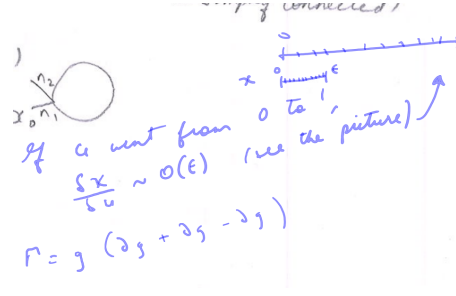 simply connected)
)
n2
x0 n1
0
x 0 ϵ
If u went from 0 to 1,
δx/δu ~ O(ϵ) (see the picture)
Γ = g (∂g + ∂g - ∂g)